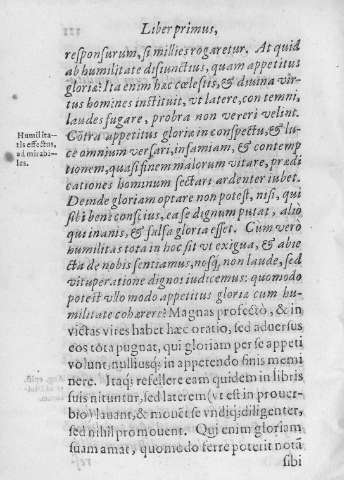 Liber primus,
responsurum, si millies rogaretur. At quid
ab humilitate disiunctius, quam appetitus
gloriæ? Ita enim hæc cœlestis, & diuina vir-
tus homines instituit, vt latere, contemni,
laudes fugare, probra non vereri velint.
Cõtra appetitus gloriæ in conspectu, & lu-
ce omnium versari, infamiam, & contemp
tionem, quasi finem malorum vitare, prædi
cationes hominum sectari ardenter iubet.
Deinde gloriam optare non potest, nisi, qui
sibi bene conscius, ea se dignum putat, alio
qui inanis, & falsa gloria esset. Cum vero
humilitas tota in hoc sit vt exigua, & abie
cta de nobis sentiamus, nosq; non laude, sed
vituperatione dignos iudicemus: quomodo
potest vllo modo appetitus gloriæ cum hu-
militate cohærere? Magnas profectò, & in
victas vires habet hæc oratio, sed aduersus
eos tota pugnat, qui gloriam per se appeti
volunt, nulliusq; in appetendo finis memi
nere. Itaq; refellere eam quidem in libris
suis nituntur, sed laterem (vt est in prouer-
bio) lauant, & mouẽt se vndiq; diligenter,
sed nihil promouent. Qui enim gloriam
suam amat, quomodo ferre poterit notã
sibi
Humilita-
tis effectus,
admirabi-
les.